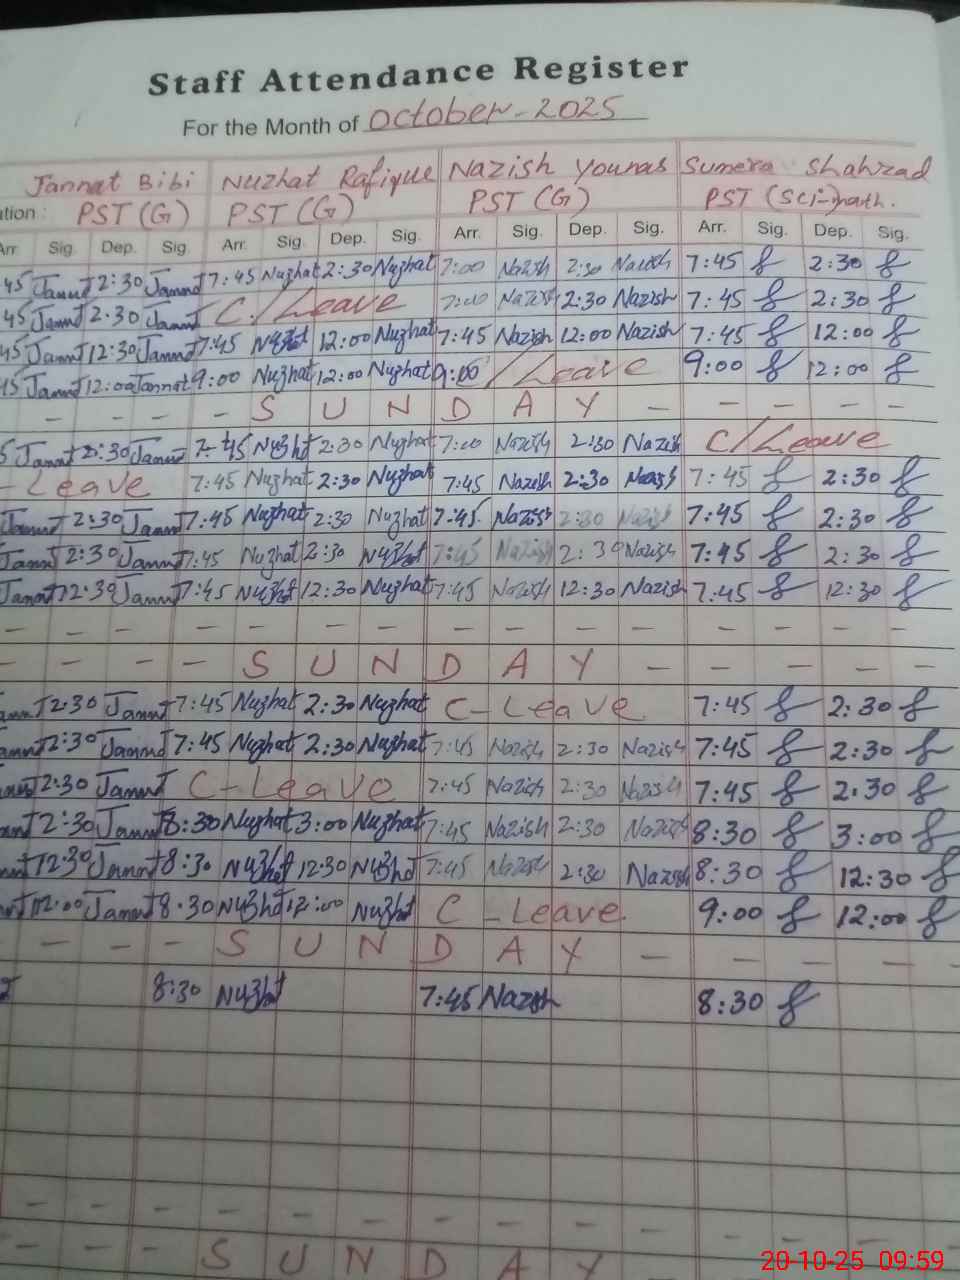 Staff Attendance Register
For the Month of October-2025
Jannat Bibi Nuzhat Rafique Nazish Younas Sumera Shahzad
ation: PST (G) PST (G) PST (G) PST (Sci-math.
Arr. Sig. Dep. Sig. Arr. Sig. Dep. Sig. Arr. Sig. Dep. Sig. Arr. Sig. Dep. Sig.
45 Jannat 2:30 Jannat 7:45 Nuzhat 2:30 Nuzhat 7:00 Nazish 2:30 Nazish 7:45 2:30
45 Jannat 2:30 Jannat C/Leave 7:00 Nazish 2:30 Nazish 7:45 2:30
45 Jannat 12:30 Jannat 7:45 Nuzhat 12:00 Nuzhat 7:45 Nazish 12:00 Nazish 7:45 12:00
45 Jannat 12:00 Jannat 9:00 Nuzhat 12:00 Nuzhat 9:00 /Leave 9:00 12:00
- - - - S U N D A Y - - - - -
5 Jannat 2:30 Jannat 7:45 Nuzhat 2:30 Nuzhat 7:00 Nazish 2:30 Nazish C/Leave
- Leave 7:45 Nuzhat 2:30 Nuzhat 7:45 Nazish 2:30 Nazish 7:45 2:30
Jannat 2:30 Jannat 7:45 Nuzhat 2:30 Nuzhat 7:45 Nazish 2:30 Nazish 7:45 2:30
Jannat 2:30 Jannat 7:45 Nuzhat 2:30 Nuzhat 7:45 Nazish 2:30 Nazish 7:45 2:30
Jannat 12:30 Jannat 7:45 Nuzhat 12:30 Nuzhat 7:45 Nazish 12:30 Nazish 7:45 12:30
- - - - - - - - - - - - - - -
- - - - S U N D A Y - - - - -
annat 2:30 Jannat 7:45 Nuzhat 2:30 Nuzhat C-Leave 7:45 2:30
annat 2:30 Jannat 7:45 Nuzhat 2:30 Nuzhat 7:45 Nazish 2:30 Nazish 7:45 2:30
2:30 Jannat C-Leave 7:45 Nazish 2:30 Nazish 7:45 2:30
2:30 Jannat 8:30 Nuzhat 3:00 Nuzhat 7:45 Nazish 2:30 Nazish 8:30 3:00
12:30 Jannat 8:30 Nuzhat 12:30 Nuzhat 7:45 Nazish 2:30 Nazish 8:30 12:30
12:00 Jannat 8:30 Nuzhat 12:00 Nuzhat C-Leave 9:00 12:00
- - - S U N D A Y - - - - -
8:30 Nuzhat 7:45 Nazish 8:30
- - - - - - - - - - -
- - - S U N D A Y
20-10-25 09:59